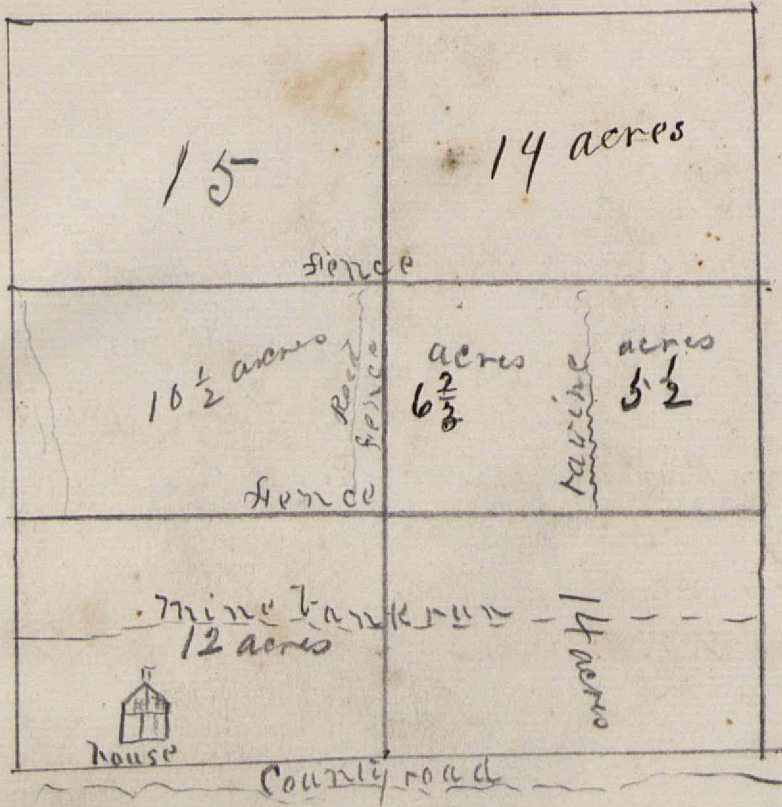 15
14 acres
fience
10 ½ acres
Road
fience
acres
6 2/3
ravine
acres
5 ½
fience
mine bank run
12 acres
14 acres
house
County road